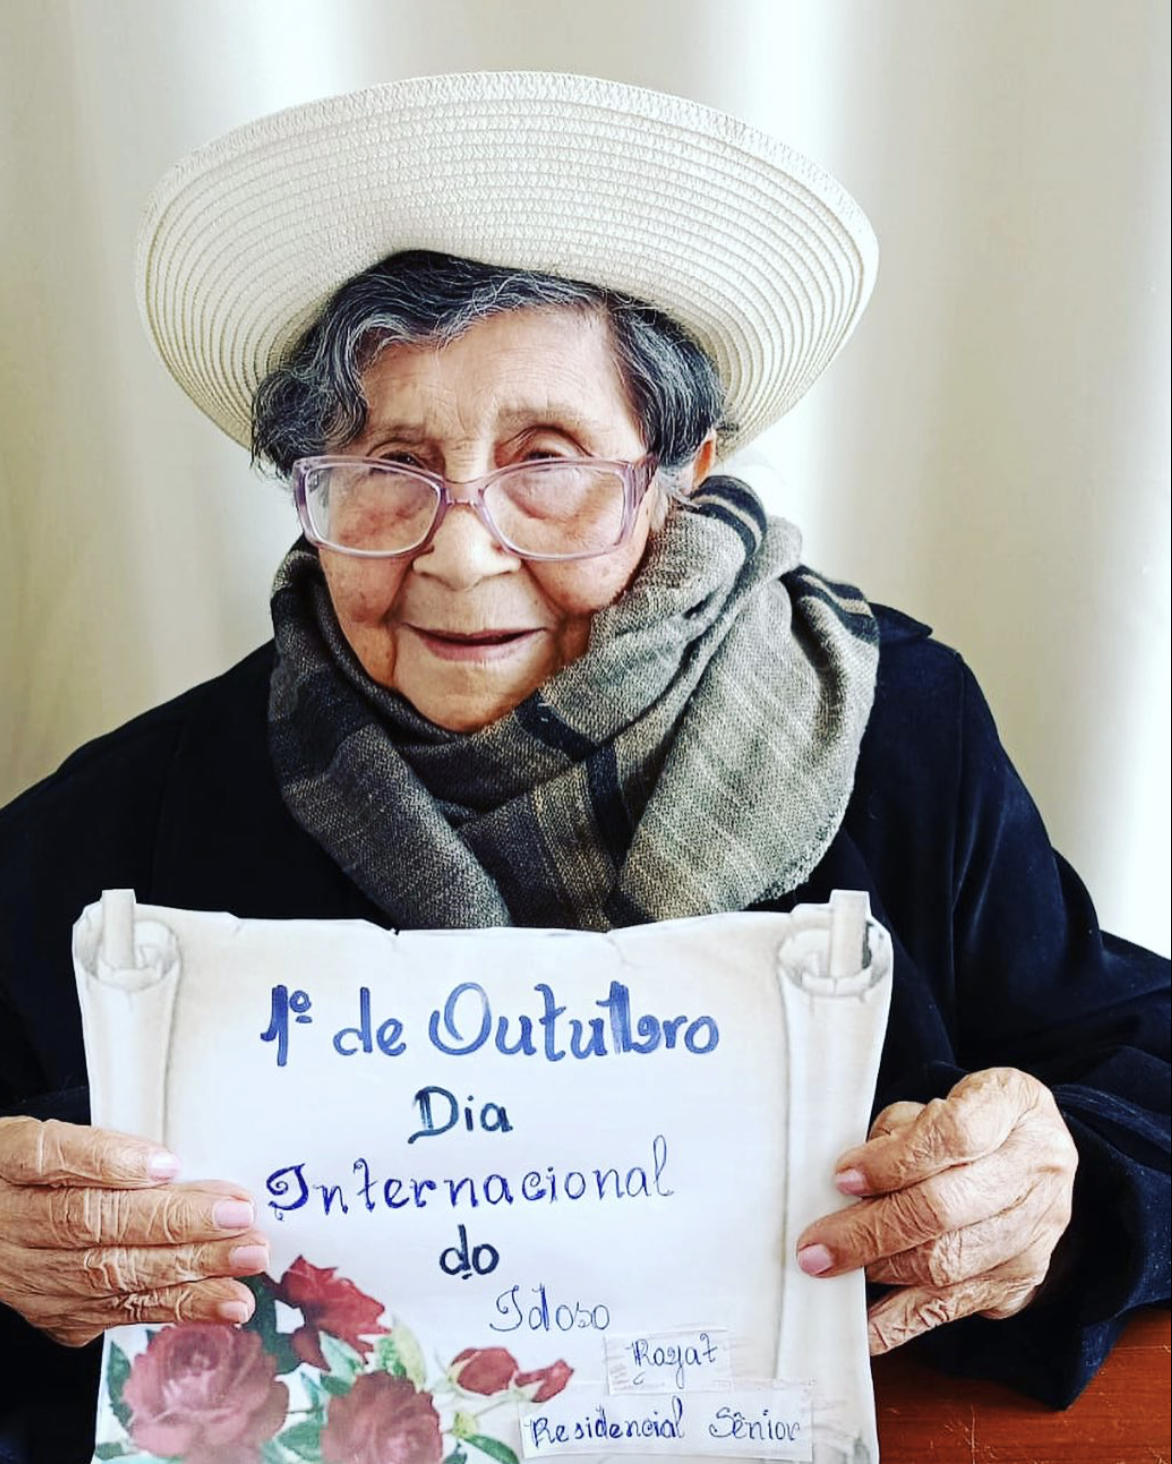 1º de Outubro
Dia
Internacional
do
Idoso
Rayat
Residencial Sênior